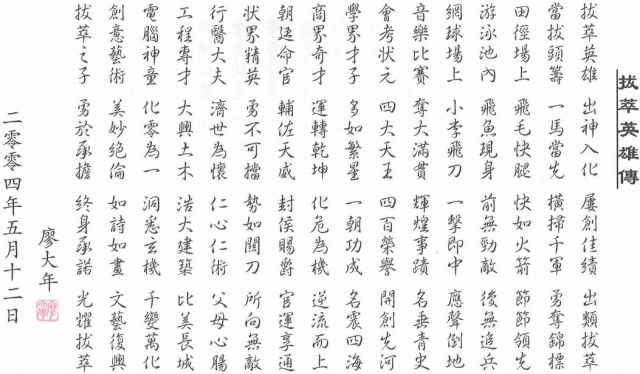 拔萃英雄傳
拔萃英雄 出神入化 屢創佳績 出類拔萃
當拔頭籌 一馬當先 橫掃千軍 勇奪錦標
田徑場上 飛毛快腿 快如火箭 節節領先
游泳池內 飛魚現身 前無勁敵 後無追兵
網球場上 小李飛刀 一擊即中 應聲倒地
音樂比賽 奪大滿貫 輝煌事蹟 名垂青史
會考狀元 四大天王 四百榮譽 開創先河
學界才子 多如繁星 一朝功成 名震四海
商界奇才 運轉乾坤 化危為機 逆流而上
朝廷命官 輔佐天威 封侯賜爵 官運享通
狀界精英 勇不可擋 勢如關刀 所向無敵
行醫大夫 濟世為懷 仁心仁術 父母心腸
工程專才 大興土木 浩大建築 比美長城
電腦神童 化零為一 洞悉玄機 千變萬化
創意藝術 美妙絕倫 如詩如畫 文藝復興
拔萃之子 勇於承擔 終身承諾 光耀拔萃
廖大年
二零零四年五月十二日